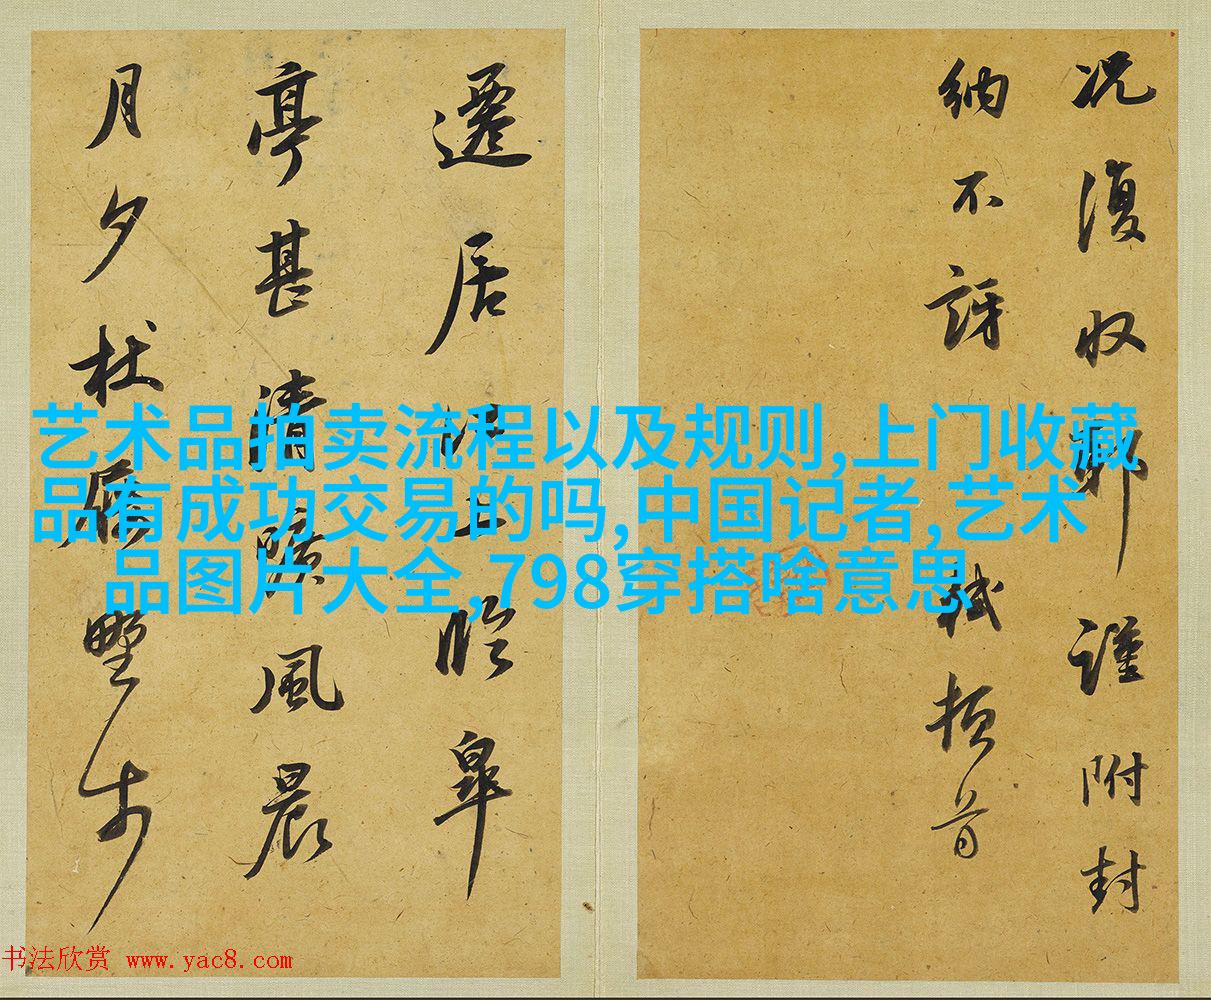 况復収謹附封
納不訝軾頓首
遷居江上臨皐
亭甚清曠風晨
月夕杖屨野步
艺术品拍卖流程以及规则,上门收藏
品有成功交易的吗,中国记者,艺术
品图片大全,798穿搭啥意思
书法欣赏 www.yac8.com